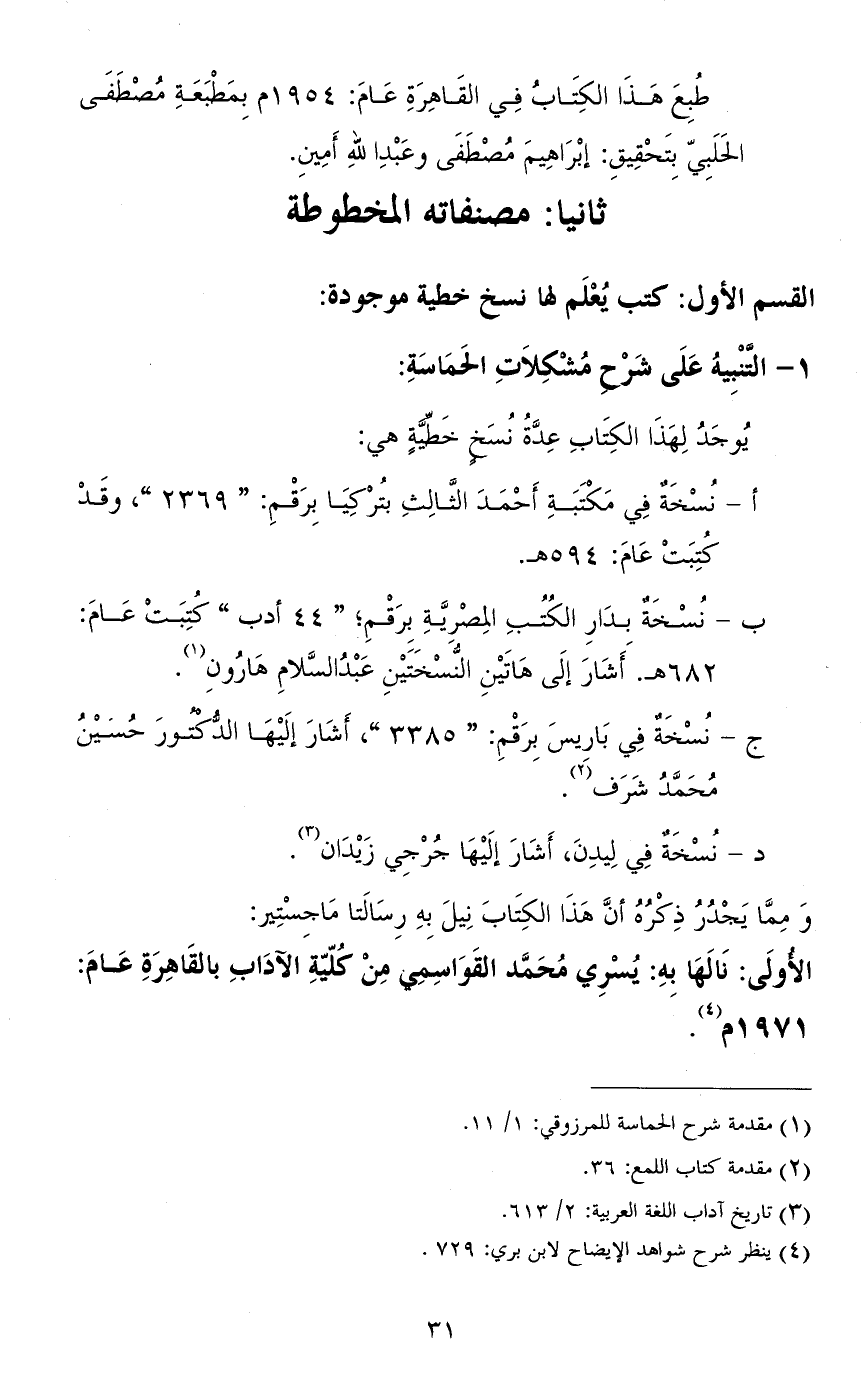 طُبِعَ هَـذَا الكِتَـابُ فِـي القَـاهِرَةِ عَـامَ: ١٩٥٤م بِمَطْبَعَـةِ مُصْطَفَـى
الحَلَبِيِّ بِتَحْقِيقِ: إبْرَاهِيمَ مُصْطَفَى وعَبْدِا للهِ أَمِينٍ.
ثانيا: مصنفاته المخطوطة
القسم الأول: كتب يُعْلَم لها نسخ خطية موجودة:
١- التَّنْبِيهُ عَلَى شَرْحِ مُشْكِلاَتِ الحَمَاسَةِ:
يُوجَدُ لِهَذَا الكِتَابِ عِدَّةُ نُسَخٍ خَطِّيَّةٍ هي:
أ - نُسْخَةٌ فِي مَكْتَبَـةِ أَحْمَدَ الثَّالِثِ بتُرْكِيَـا بِرَقْـمِ: " ٢٣٦٩ "، وقَـدْ
كُتِبَتْ عَامَ: ٥٩٤هـ.
ب - نُسْـخَةٌ بِـدَارِ الكُتُـبِ المِصْرِيَّـةِ بِرَقْـمِ؛ " ٤٤ أدب " كُتِبَـتْ عَـامَ:
٦٨٢هـ. أَشَارَ إلَى هَاتَيْنِ النُّسْخَتَيْنِ عَبْدُالسَّلامِ هَارُونِ(١).
ج - نُسْخَةٌ فِي بَارِيسَ بِرَقْمِ: " ٣٣٨٥ "، أَشَارَ إلَيْهَـا الدُّكْتُـورَ حُسَـيْنُ
مُحَمَّدُ شَرَف(٢).
د - نُسْخَةٌ فِي لِيدِنَ، أَشَارَ إلَيْهَا جُرْجي زَيْدَان(٣).
وَ مِمَّا يَجْدُرُ ذِكْرُهُ أنَّ هَذَا الكِتَابَ نِيلَ بِهِ رِسَالَتا مَاجِسْتِير:
الأُولَى: نَالَهَا بِهِ: يُسْرِي مُحَمَّد القَوَاسِمِي مِنْ كُلِّيَّةِ الآدَابِ بالقَاهِرَةِ عَـامَ:
١٩٧١م(٤).
(١) مقدمة شرح الحماسة للمرزوقي: ١/ ١١.
(٢) مقدمة كتاب اللمع: ٣٦.
(٣) تاريخ آداب اللغة العربية: ٢/ ٦١٣.
(٤) ينظر شرح شواهد الإيضاح لابن بري: ٧٢٩ .
٣١